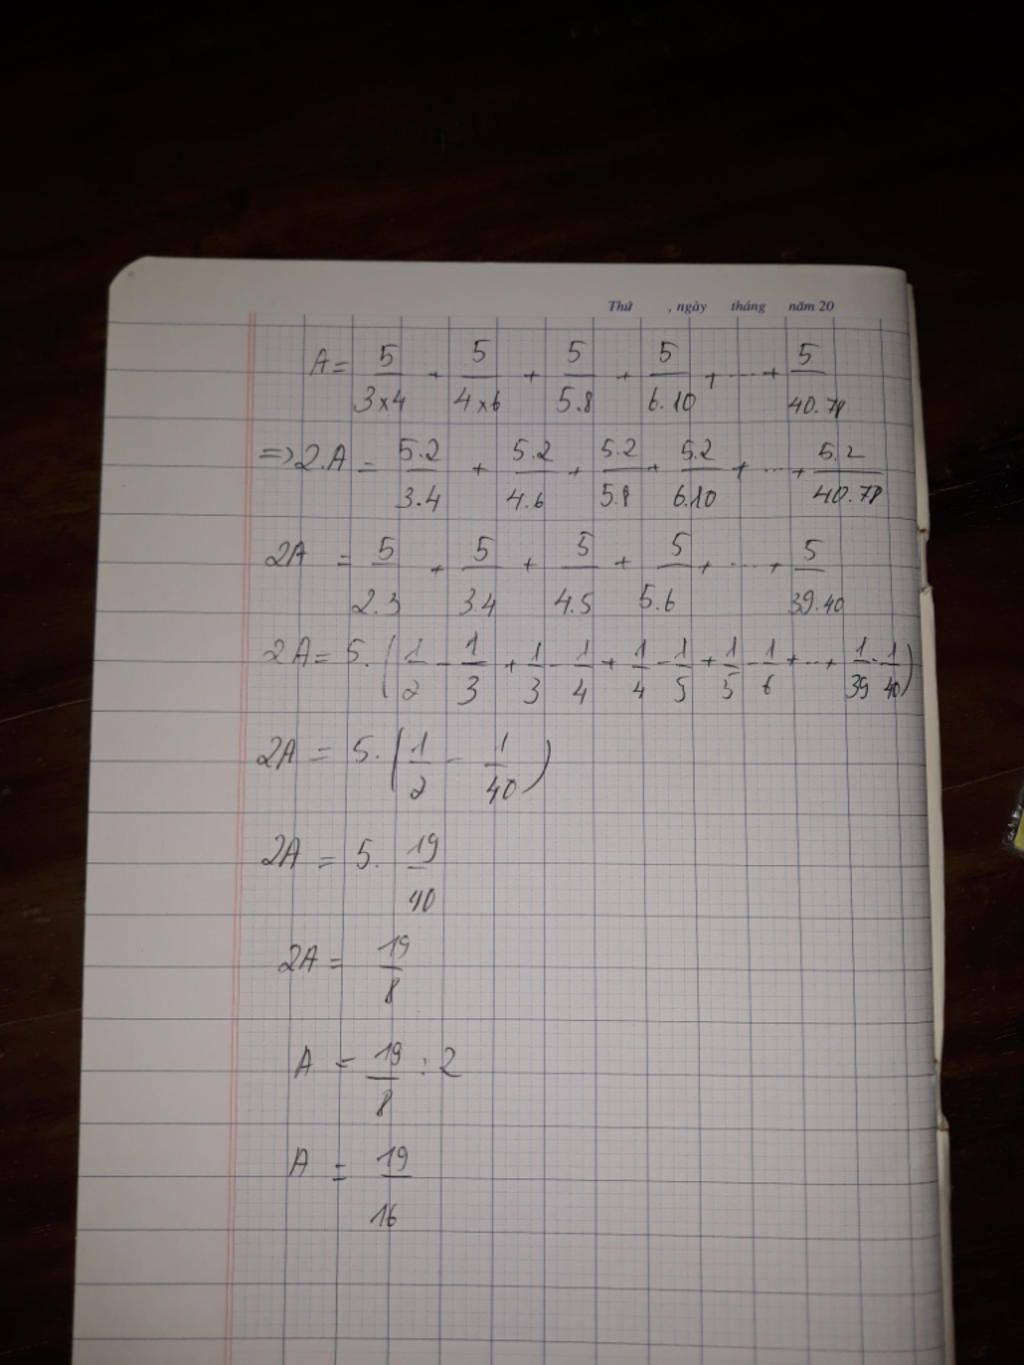 Thứ , ngày tháng năm 20
A = 5/(3x4) + 5/(4x6) + 5/(5.8) + 5/(6.10) + ... + 5/(40.78)
=> 2.A = 5.2/(3.4) + 5.2/(4.6) + 5.2/(5.8) + 5.2/(6.10) + ... + 5.2/(40.78)
2A = 5/(2.3) + 5/(3.4) + 5/(4.5) + 5/(5.6) + ... + 5/(39.40)
2A = 5.(1/2 - 1/3 + 1/3 - 1/4 + 1/4 - 1/5 + 1/5 - 1/6 + ... + 1/39 - 1/40)
2A = 5.(1/2 - 1/40)
2A = 5. 19/40
2A = 19/8
A = 19/8 : 2
A = 19/16